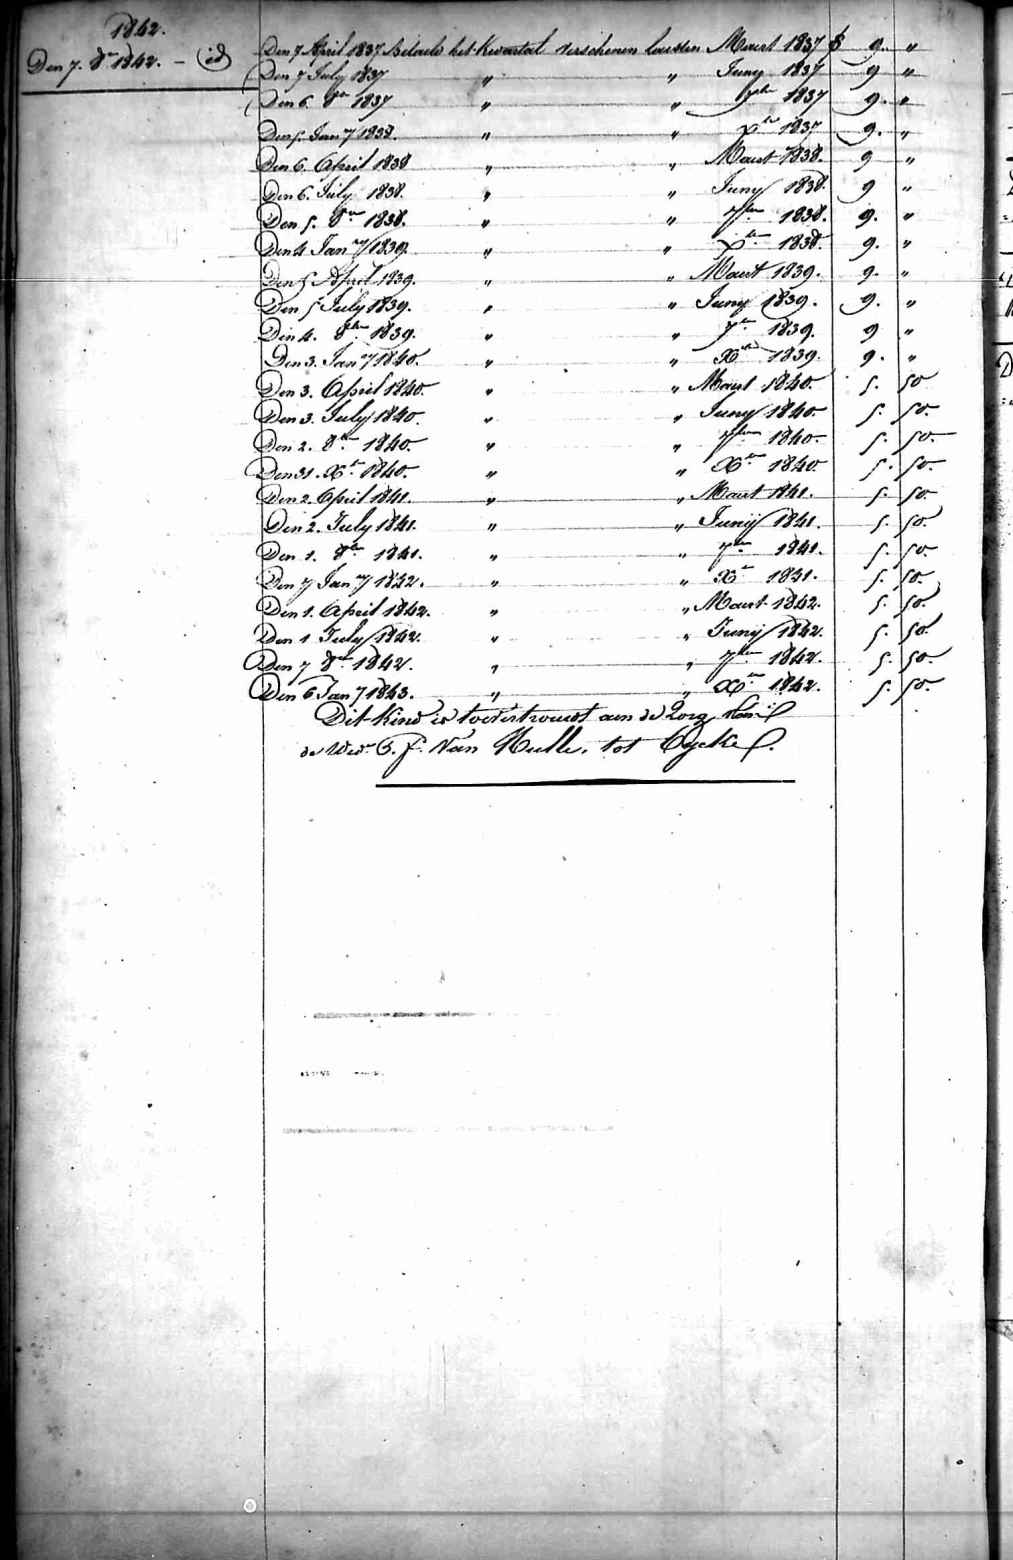 1842.
Den 7. 8er 1842. - id
Den 7 April 1837 betaeld het kwartael verschenen laesten Maert 1837 $ 9 "
Den 7 July 1837 " " Juny 1837 9 "
Den 6. 8er 1837 " " 7ber 1837 9. "
Den 5. Jany 1838. " " Xber 1837 9. "
Den 6. April 1838 " " Maert 1838. 9 "
Den 6. July 1838. " " Juny 1838. 9 "
Den 5. 8er 1838. " " 7ber 1838. 9. "
Den 4 Jany 1839. " " Xber 1838. 9. "
Den 5 April 1839. " " Maert 1839. 9. "
Den 5 July 1839. " " Juny 1839. 9. "
Den 4. 8ber 1839. " " 7er 1839. 9 "
Den 3. Jany 1840. " " Xber 1839. 9. "
Den 3. April 1840. " " Maert 1840. 5. 50
Den 3. July 1840. " " Juny 1840. 5. 50.
Den 2. 8er 1840. " " 7ber 1840. 5. 50.
Den 31. Xer 1840. " " Xer 1840 5. 50.
Den 2. April 1841. " " Maert 1841. 5. 50
Den 2. July 1841. " " Junij 1841. 5. 50.
Den 1. 8er 1841. " " 7er 1841. 5. 50.
Den 7 Jany 1842. " " Xer 1841. 5. 50.
Den 1. April 1842. " " Maert 1842. 5. 50.
Den 1 July 1842. " " Junij 1842. 5. 50.
Den 7 8er 1842. " " 7ber 1842. 5. 50.
Den 6 Jany 1843. " " Xer 1842. 5. 50.
Dit kind is toevertrouwt aen de zorg van
de Wed. Van Hulle, tot Eycke.